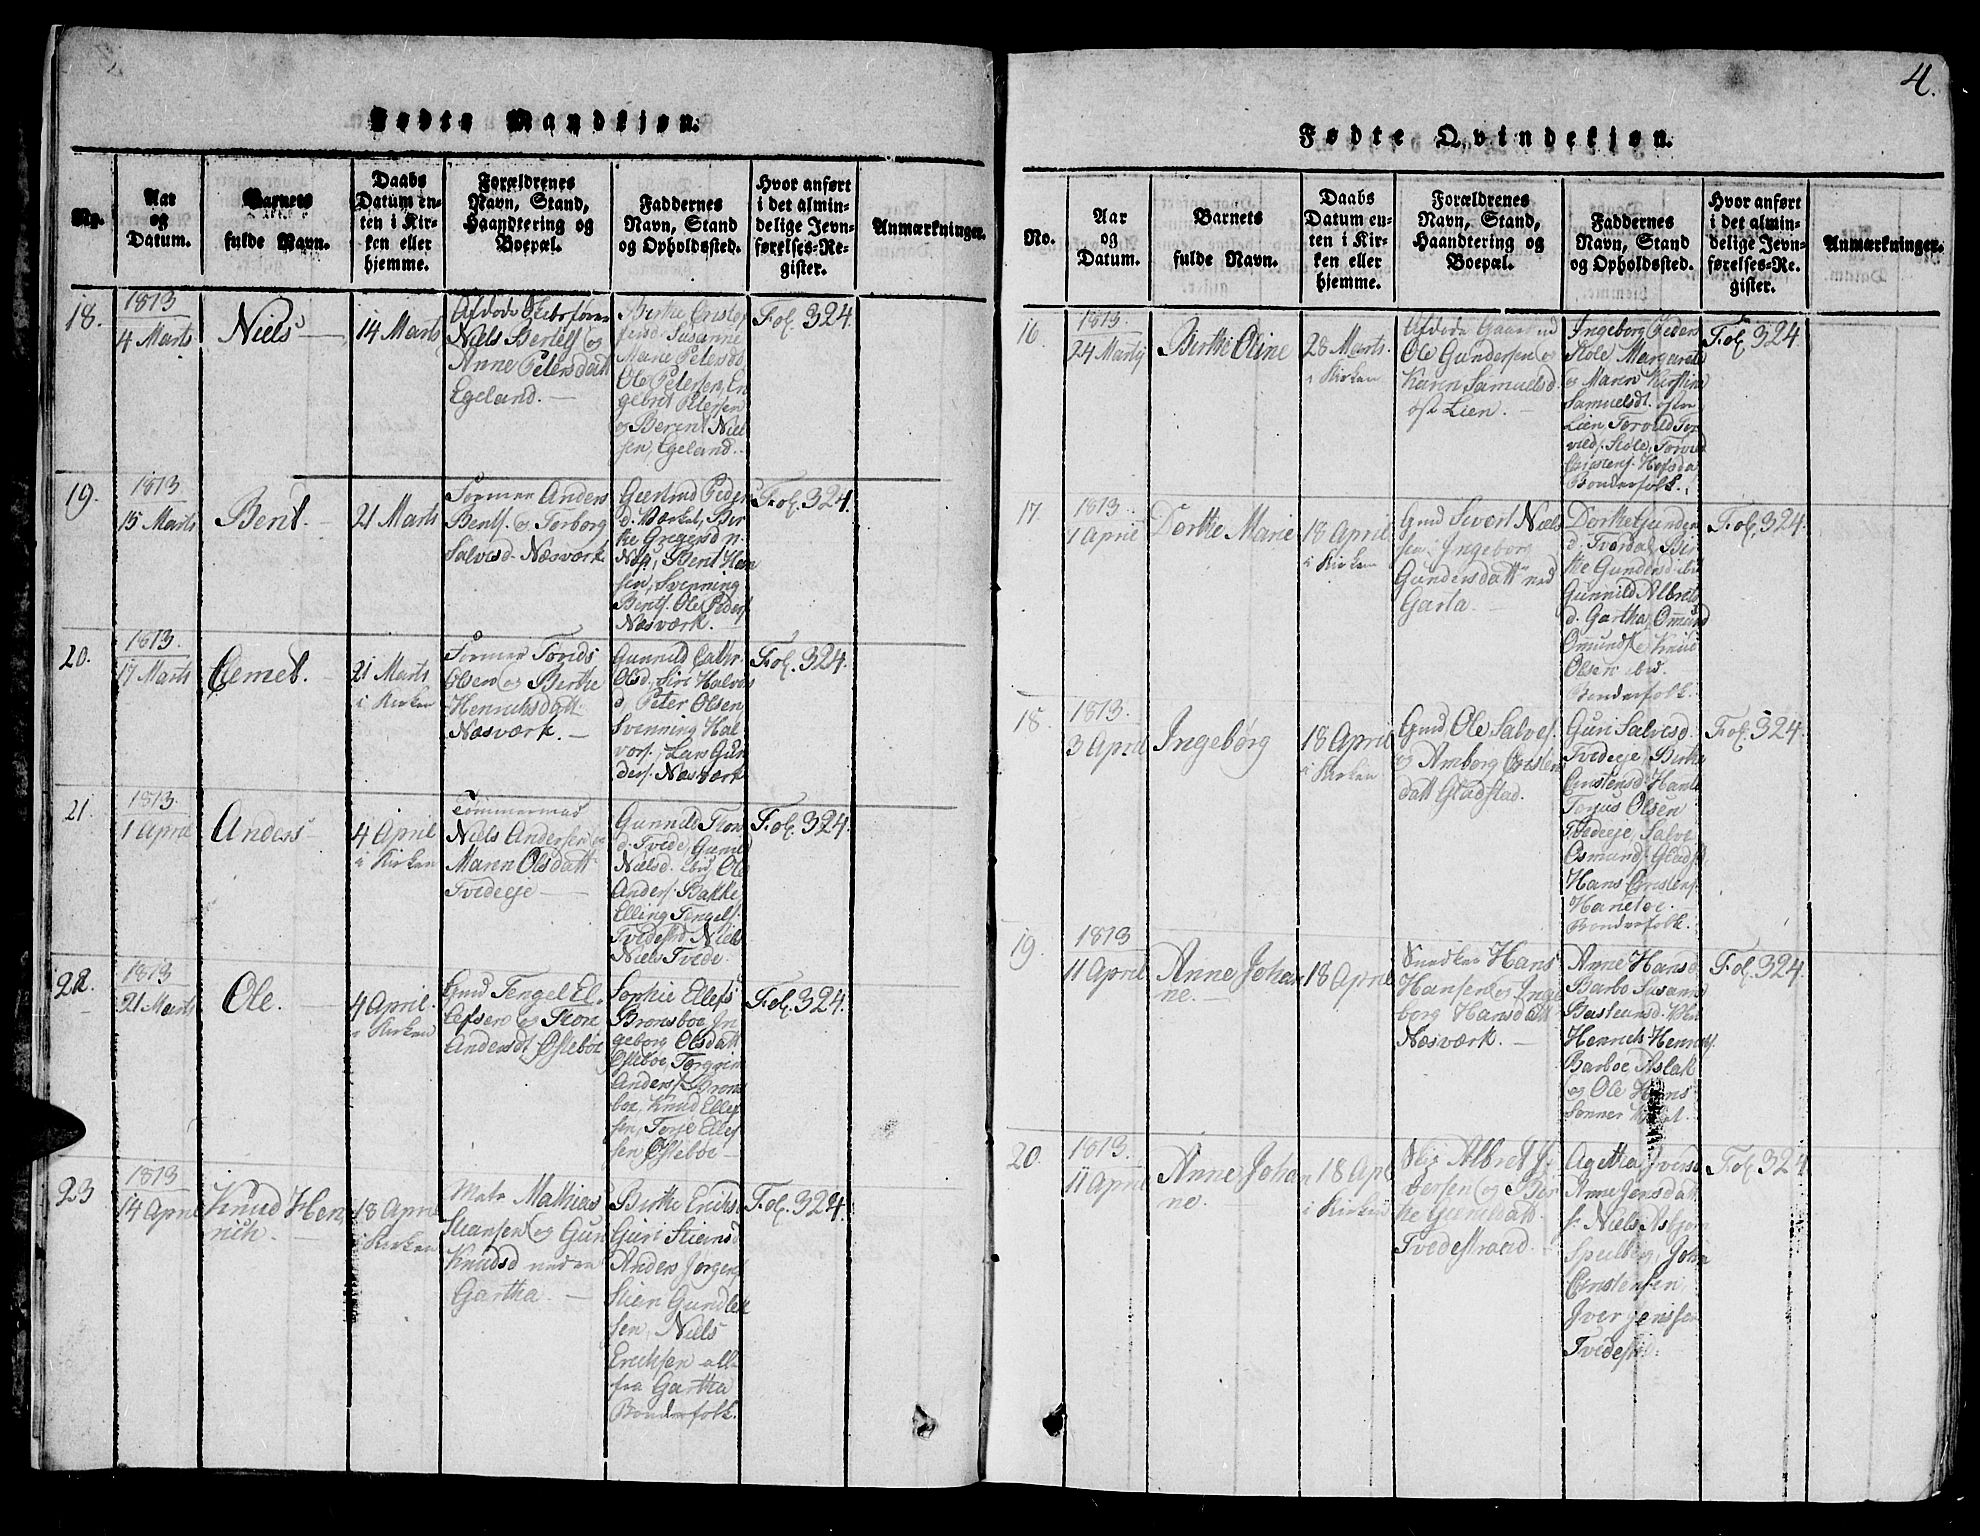 4.
Fødte Mandkjøn.
No.
Aar
og
Datum.
Barnets
fulde Navn.
Daabs
Datum en-
ten i Kir-
ken eller
hjemme.
Forældrenes
Navn, Stand,
Haandtering og
Boepæl.
Faddernes
Navn, Stand
og Opholdssted.
Hvor anført
i det almin-
delige Jevn-
førelses-Re-
gister.
Anmærkninger.
18.
1813
4 Marts
Niels
14 Marts
Afdøde
Niels Bertels og
Anne Petersdatt
Egeland.
Berthe
Susanne
Marie Petersd
Ole Petersen, En-
gebret Petersen
og Berent Niel-
sen, Egeland.
Fol. 324.
19.
1813
15 Marts
Bent.
21 Marts
Former Anders
Bents. og Torborg
Salvesd. Næsværk
Geertrud Peders
d. Værket, Bir-
the Gregersd n.
Næs, Bent Han-
sen, Svenning
Bents. Ole Peders
Næsværk.
Fol. 324.
20.
1813.
17 Marts
Clemet.
21 Marts
i Kirken
Former Tovids
Olsen og Berthe
Henrichsdatt
Næsværk.
Gunnild Cathr
Olsd, Siri Halvors
d, Peter Olsen
Svenning Hal-
vors., Lars Gun-
ders. Næsværk
Fol. 324.
21.
1813.
1 April
Anders
4 April
i Kirken
Tømmermad
Niels Andersen og
Maren Olsdatt
Tvedeeje
Gunnild
d. Tvede, Gunild
Nielsd. ibid, Ole
Anders. Bakke
Elling Tengels.
Tvedestd Niels
Niels Tvede.
Fol. 324.
22.
1813
21 Marts
Ole.
4 April.
i Kirken
Gmd Tengel El-
lefsen og Thone
Andersdt Østeboe
Sophie Ellefs
Bronsboe In-
geborg Olsdatt
Østeboe, Torggrim
Anders. Brons-
boe, Knud Ellef-
sen, Torje Ellef-
sen Østeboe
Fol. 324.
23
1813
14 April
Knud Hen-
rich.
18 April
i Kirken
Matr Mathias
Steansen og Gun
Knudsd nedre
Gartha.
Birthe Erichs
Guri Steensd
Anders Jørgens
Steen Gundlek
sen, Niels
Ericksen alle
fra Gartha
Bonderfolk.
Fol. 324.
Fødte Qvindekjøn.
No.
Aar
og
Datum.
Barnets
fulde Navn.
Daabs
Datum en-
ten i Kir-
ken eller
hjemme.
Forældrenes
Navn, Stand,
Haandtering og
Boepæl.
Faddernes
Navn, Stand
og Opholdssted.
Hvor anført
i det almin-
delige Jevn-
førelses-Re-
gister.
Anmærkninger.
16
1813.
24 Martij
Birthe Oline
28 Marts.
i Kirken
Afdøde Gaard
Ole Gundersen og
Karen Samuelsd.
øst Lien.
Ingeborg Peders
Skole Margarete
og Maren Kirstine
Samuelsdt. østre
Lien Torvild Tor-
vilds. Skole, Torvid
Cristens. Hofsda
Bonderfolk.
Fol. 324.
17
1813.
1 April
Dorthe Marie
18 April
i Kirken
Gmd Sivert Niels
sen, Ingeborg
Gundersdatt ned
Garta.
Dorthe Gunders
d. Tverdal, Bir-
the Gundersd ibid
Gunnild Albrets
d. Gartha, Omund
Omunds, Knud
Olsen ibid.
Bonderfolk.
Fol. 324.
18.
1813.
3 April
Ingebørg
18 April
i Kirken
Gmd, Ole Salves.
og Amborg Cristens
datt Gladstad.
Guri Salvesd.
Tvedeeje, Birthe
Cristensd. Hant
Torjus Olsen
Tvedeeje, Salve
Osmunds. Gladst
Hans Cristens.
Hantoe.
Bonderfolk.
Fol. 324.
19.
1813
11 April
Anne Johan-
ne.
18 April
Snedker Hans
Hansen og Inge-
borg Hansdatt
Næsværk.
Anne Hansd
Barbo Susanne
Bastiansd.
Henrich Henrichs.
Barboe Aslak
og Ole Hans
Sønner
Fol. 324.
20.
1813.
11 April
Anne Johan
ne.
18 Apl
i Kirken
Albret
dersen og Bir-
the
Tvedestrand.
Agetha, Iversd
Anne Jensdatt
Niels Asbjørn
Speilberg, John
Cristensen,
Iver Jenssen
Tvedestr.
Fol. 324